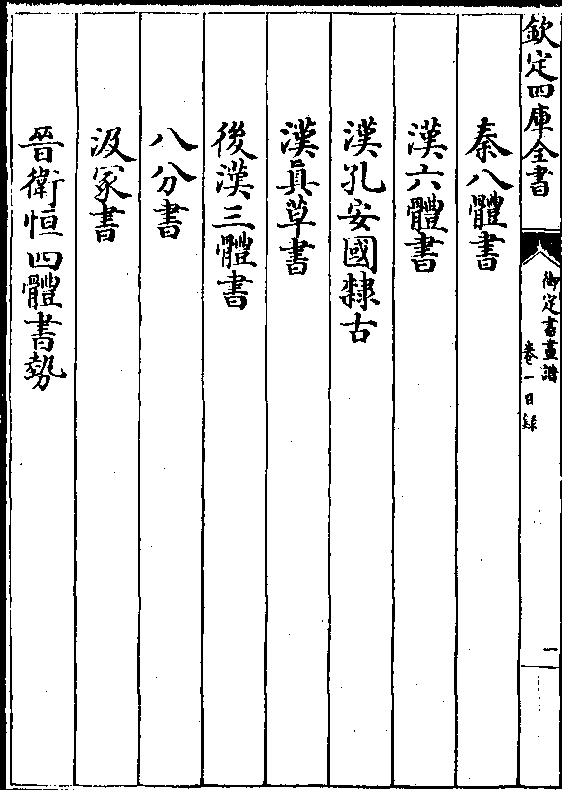 欽定四庫全書
御定書畫譜
卷一目錄
一
秦八體書
漢六體書
漢孔安國隸古
漢真草書
後漢三體書
八分書
汲冢書
晉衛恒四體書勢